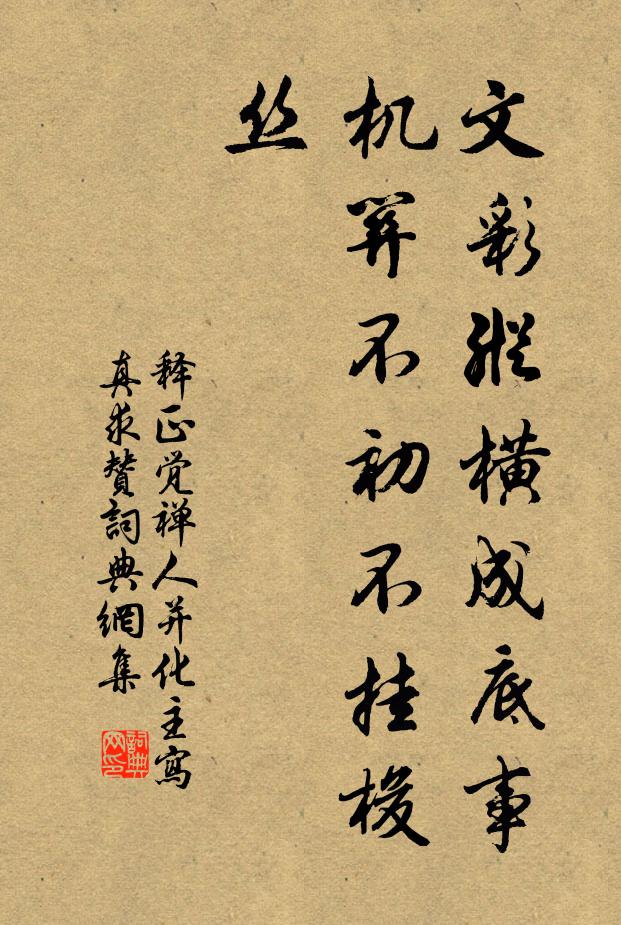 文彩縱橫成底事
机不初不挂梭
丝
释正觉禅人并化主寫
真求赞詞典網集
詞典
网印